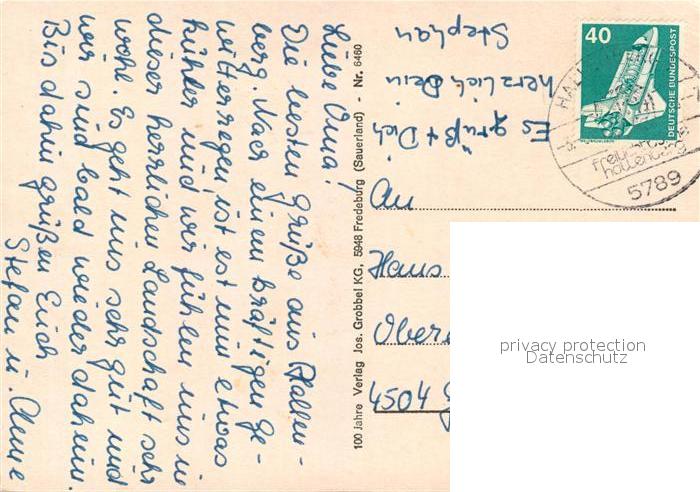 Liebe Oma!
Die besten Grüße aus Hallen-
berg. Nach einem kräftigen Ge-
witterregen ist es nun etwas
kühler und wir fühlen uns in
dieser herrlichen Landschaft sehr
wohl. Es geht uns sehr gut und
wir sind bald wieder daheim.
Bis dahin grüßen Euch
Stefan u. Anne
Es grüßt Dich
herzlich Dein
Stephan
100 Jahre Verlag Jos. Grobbel KG, 5948 Fredeburg (Sauerland) - Nr. 6460
40
DEUTSCHE BUNDESPOST
HALL
5789
An
Hans
Ober
4504
privacy protection
Datenschutz